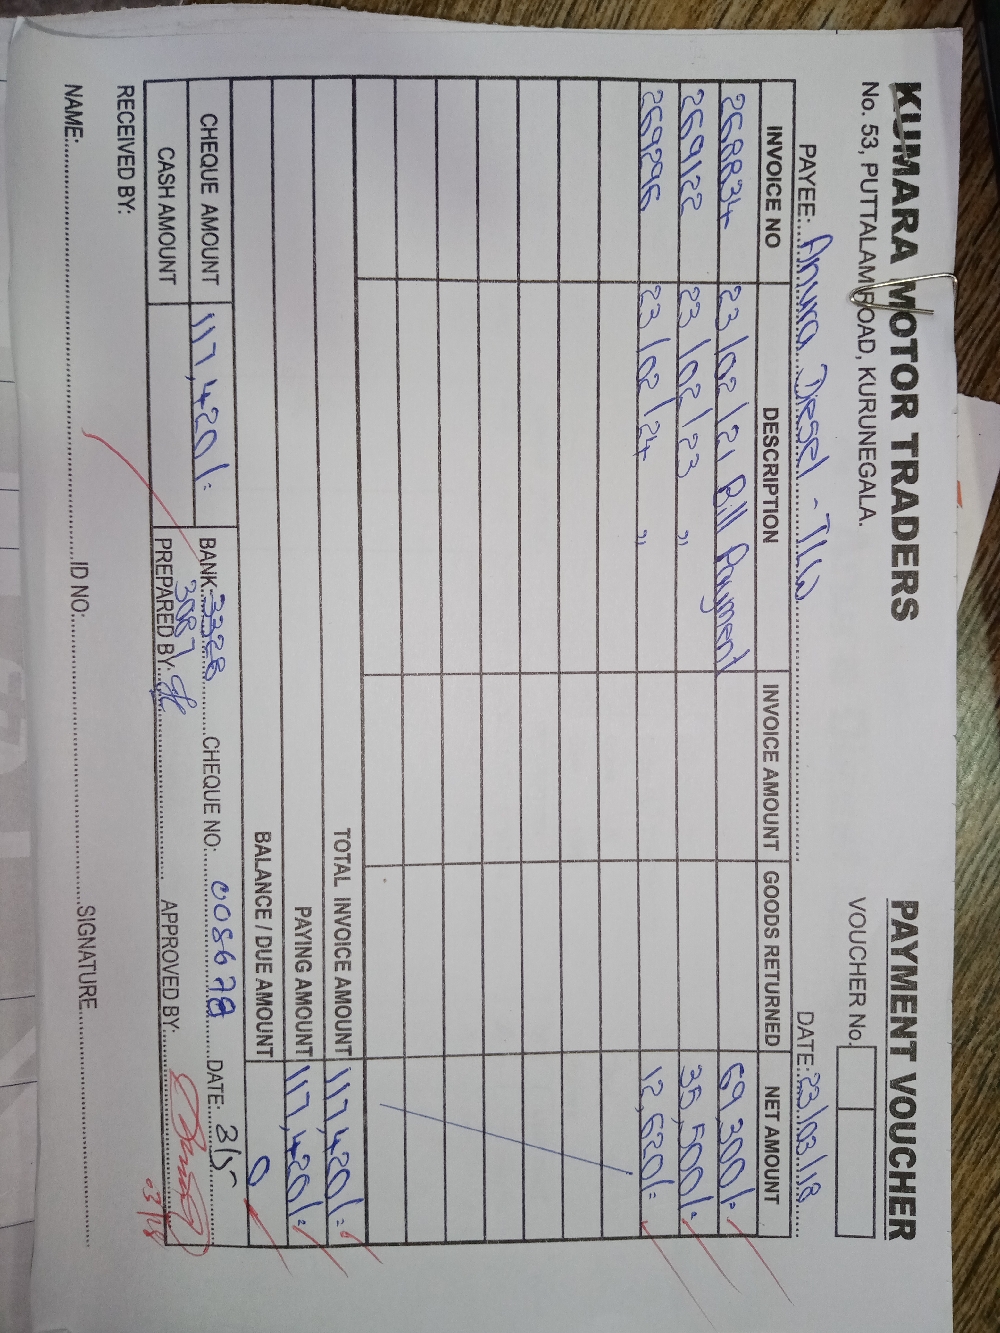 KUMARA MOTOR TRADERS PAYMENT VOUCHER
No. 53, PUTTALAM ROAD, KURUNEGALA. VOUCHER No.
PAYEE: Anura Diesel - JLW DATE: 23/03/18
INVOICE NO DESCRIPTION INVOICE AMOUNT GOODS RETURNED NET AMOUNT
268834 23/02/21 Bill Payment 69,300/-
269122 23/02/23 " 35,500/-
269296 23/02/24 " 12,620/-
TOTAL INVOICE AMOUNT 117,420/-
PAYING AMOUNT 117,420/-
BALANCE / DUE AMOUNT 0
CHEQUE AMOUNT 117,420/- BANK: 3328 CHEQUE NO: 008678 DATE: 3/5
3087
CASH AMOUNT PREPARED BY: APPROVED BY:
03/18
RECEIVED BY:
NAME: ID NO: SIGNATURE